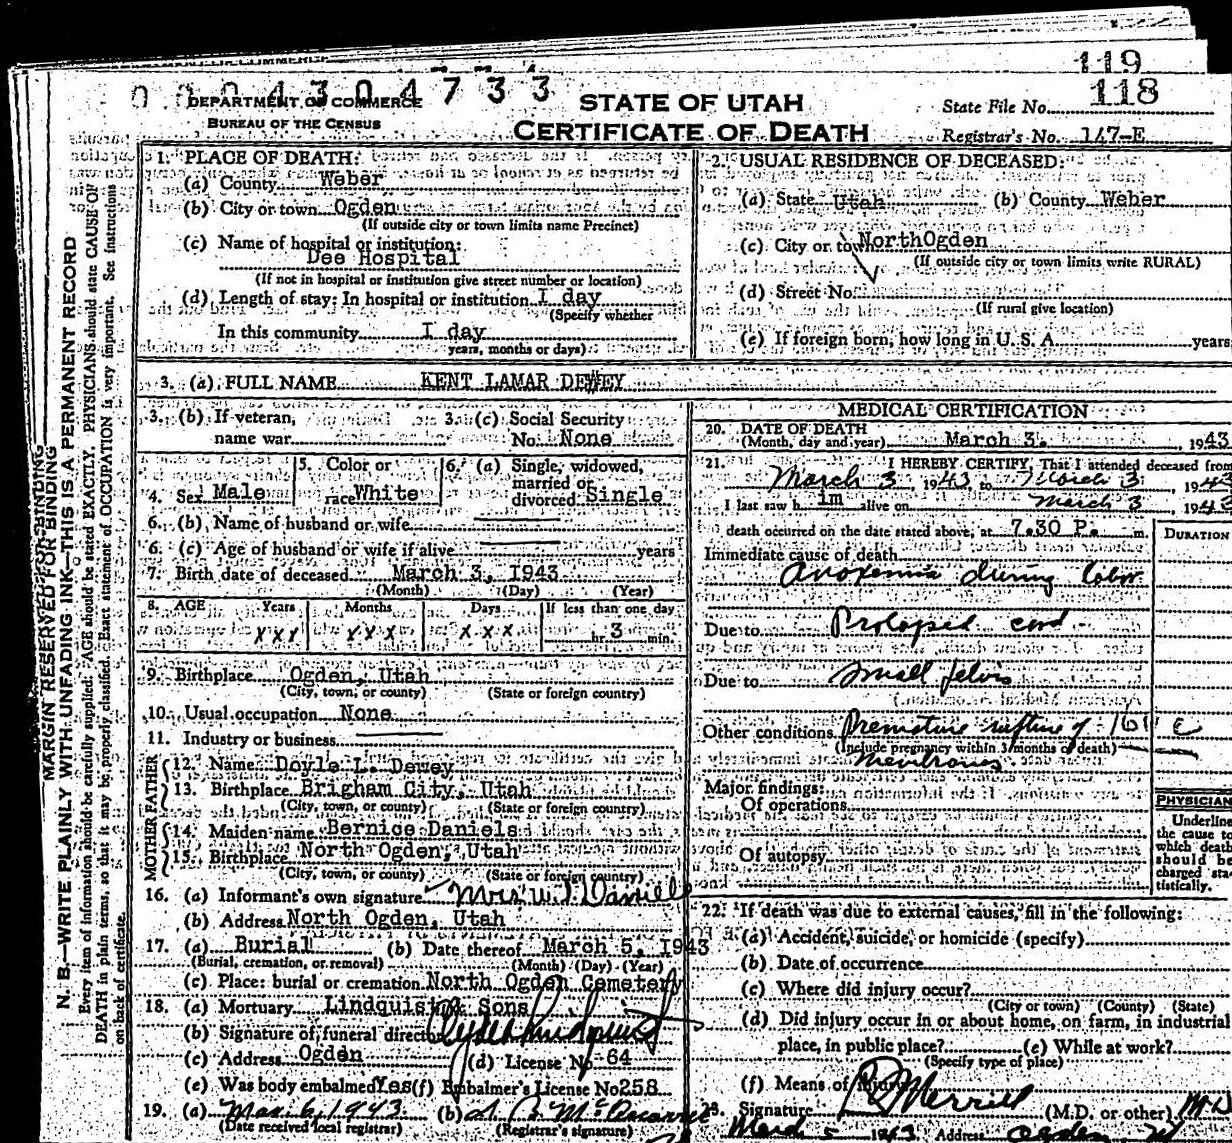 119
0 0 0 4 3 0 4 7 3 3
DEPARTMENT OF COMMERCE
BUREAU OF THE CENSUS
STATE OF UTAH
CERTIFICATE OF DEATH
State File No. 118
Registrar's No. 147-E
MARGIN RESERVED FOR BINDING
N. B.—WRITE PLAINLY WITH UNFADING INK—THIS IS A PERMANENT RECORD
Every item of information should be carefully supplied. AGE should be stated EXACTLY. PHYSICIANS should state CAUSE OF
DEATH in plain terms, so that it may be properly classified. Exact statement of OCCUPATION is very important. See instructions
on back of certificate.
1. PLACE OF DEATH:
(a) County Weber
(b) City or town Ogden
(If outside city or town limits name Precinct)
(c) Name of hospital or institution:
Dee Hospital
(If not in hospital or institution give street number or location)
(d) Length of stay: In hospital or institution I day
(Specify whether
In this community I day
years, months or days)
2. USUAL RESIDENCE OF DECEASED:
(a) State Utah (b) County Weber
(c) City or town NorthOgden
(If outside city or town limits write RURAL)
(d) Street No.
(If rural give location)
(e) If foreign born, how long in U. S. A. years
3. (a) FULL NAME KENT LAMAR DEWEY
3. (b) If veteran,
name war
3. (c) Social Security
No. None
4. Sex Male
5. Color or
race White
6. (a) Single, widowed,
married or
divorced Single
6. (b) Name of husband or wife
6. (c) Age of husband or wife if alive years
7. Birth date of deceased March 3, I943
(Month) (Day) (Year)
8. AGE Years Months Days If less than one day
xxx xxx xxx hr. 3 min.
9. Birthplace Ogden, Utah
(City, town, or county) (State or foreign country)
10. Usual occupation None
11. Industry or business
FATHER
12. Name Doyle L. Dewey
13. Birthplace Brigham City, Utah
(City, town, or county) (State or foreign country)
MOTHER
14. Maiden name Bernice Daniels
15. Birthplace North Ogden, Utah
(City, town, or county) (State or foreign country)
16. (a) Informant's own signature Mrs. W. J. Daniels
(b) Address North Ogden, Utah
17. (a) Burial (b) Date thereof March 5, I943
(Burial, cremation, or removal) (Month) (Day) (Year)
(c) Place: burial or cremation North Ogden Cemetery
18. (a) Mortuary Lindquist & Sons
(b) Signature of funeral director Clyde Lindquist
(c) Address Ogden (d) License No. 64
(e) Was body embalmed Yes (f) Embalmer's License No 258
19. (a) Mar. 6, 1943 (b)
(Date received local registrar) (Registrar's signature)
MEDICAL CERTIFICATION
20. DATE OF DEATH
(Month, day and year) March 3. 1943
21. I HEREBY CERTIFY, That I attended deceased from
March 3, 1943 to March 3, 1943
I last saw h im alive on March 3, 1943
death occurred on the date stated above, at 7.30 P. m.
DURATION
Immediate cause of death
Anoxemia during labor
Due to Prolapsed cord
Due to Small pelvis
Other conditions Premature rupture of
(Include pregnancy within 3 months of death)
membranes.
Major findings:
Of operations
Of autopsy
PHYSICIAN
Underline
the cause to
which death
should be
charged sta-
tistically.
22. If death was due to external causes, fill in the following:
(a) Accident, suicide, or homicide (specify)
(b) Date of occurrence
(c) Where did injury occur?
(City or town) (County) (State)
(d) Did injury occur in or about home, on farm, in industrial
place, in public place? (e) While at work?
(Specify type of place)
(f) Means of injury
23. Signature Merrill (M.D. or other) M.D.
March 5 1943 Address Ogden